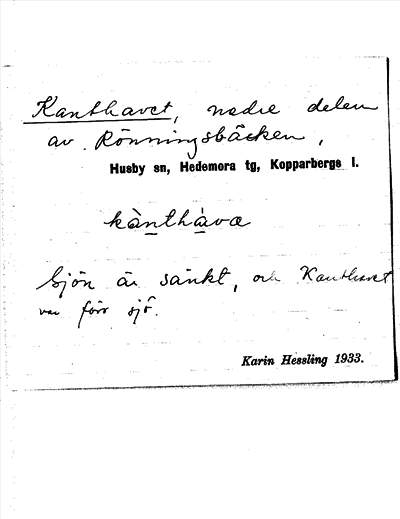 Kanthavet, nedre delen
av Rönningsbäcken,
Husby sn, Hedemora tg, Kopparbergs l.
kànthàva
Sjön är sänkt, och Kanthavet
var förr sjö.
Karin Hessling 1933.